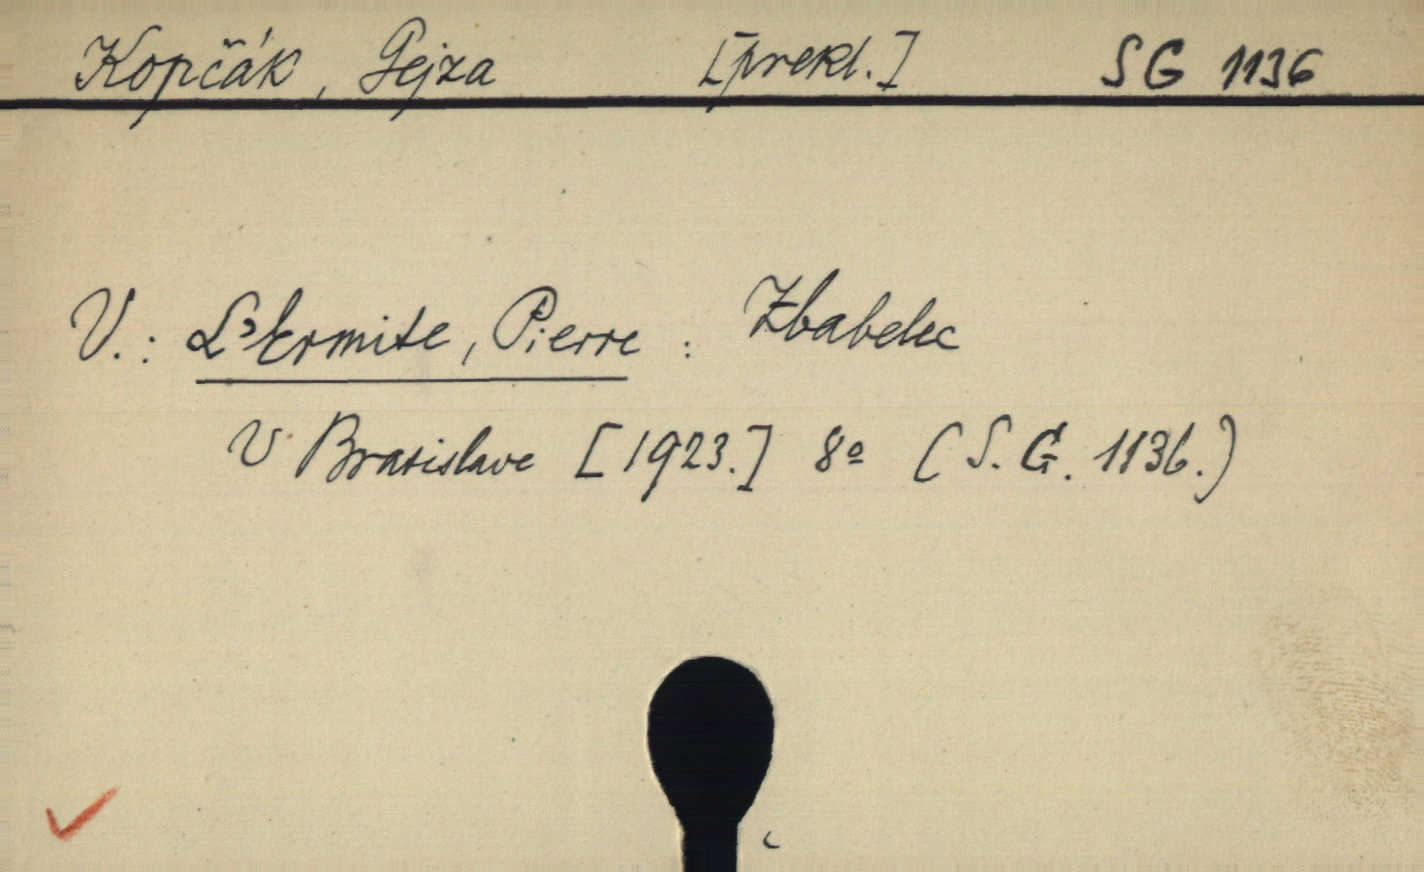 Kopčák, Gejza [prekl.] SG 1136
V.: L'Ermite, Pierre : Zbabelec
V Bratislave [1923.] 8º (S.G. 1136.)